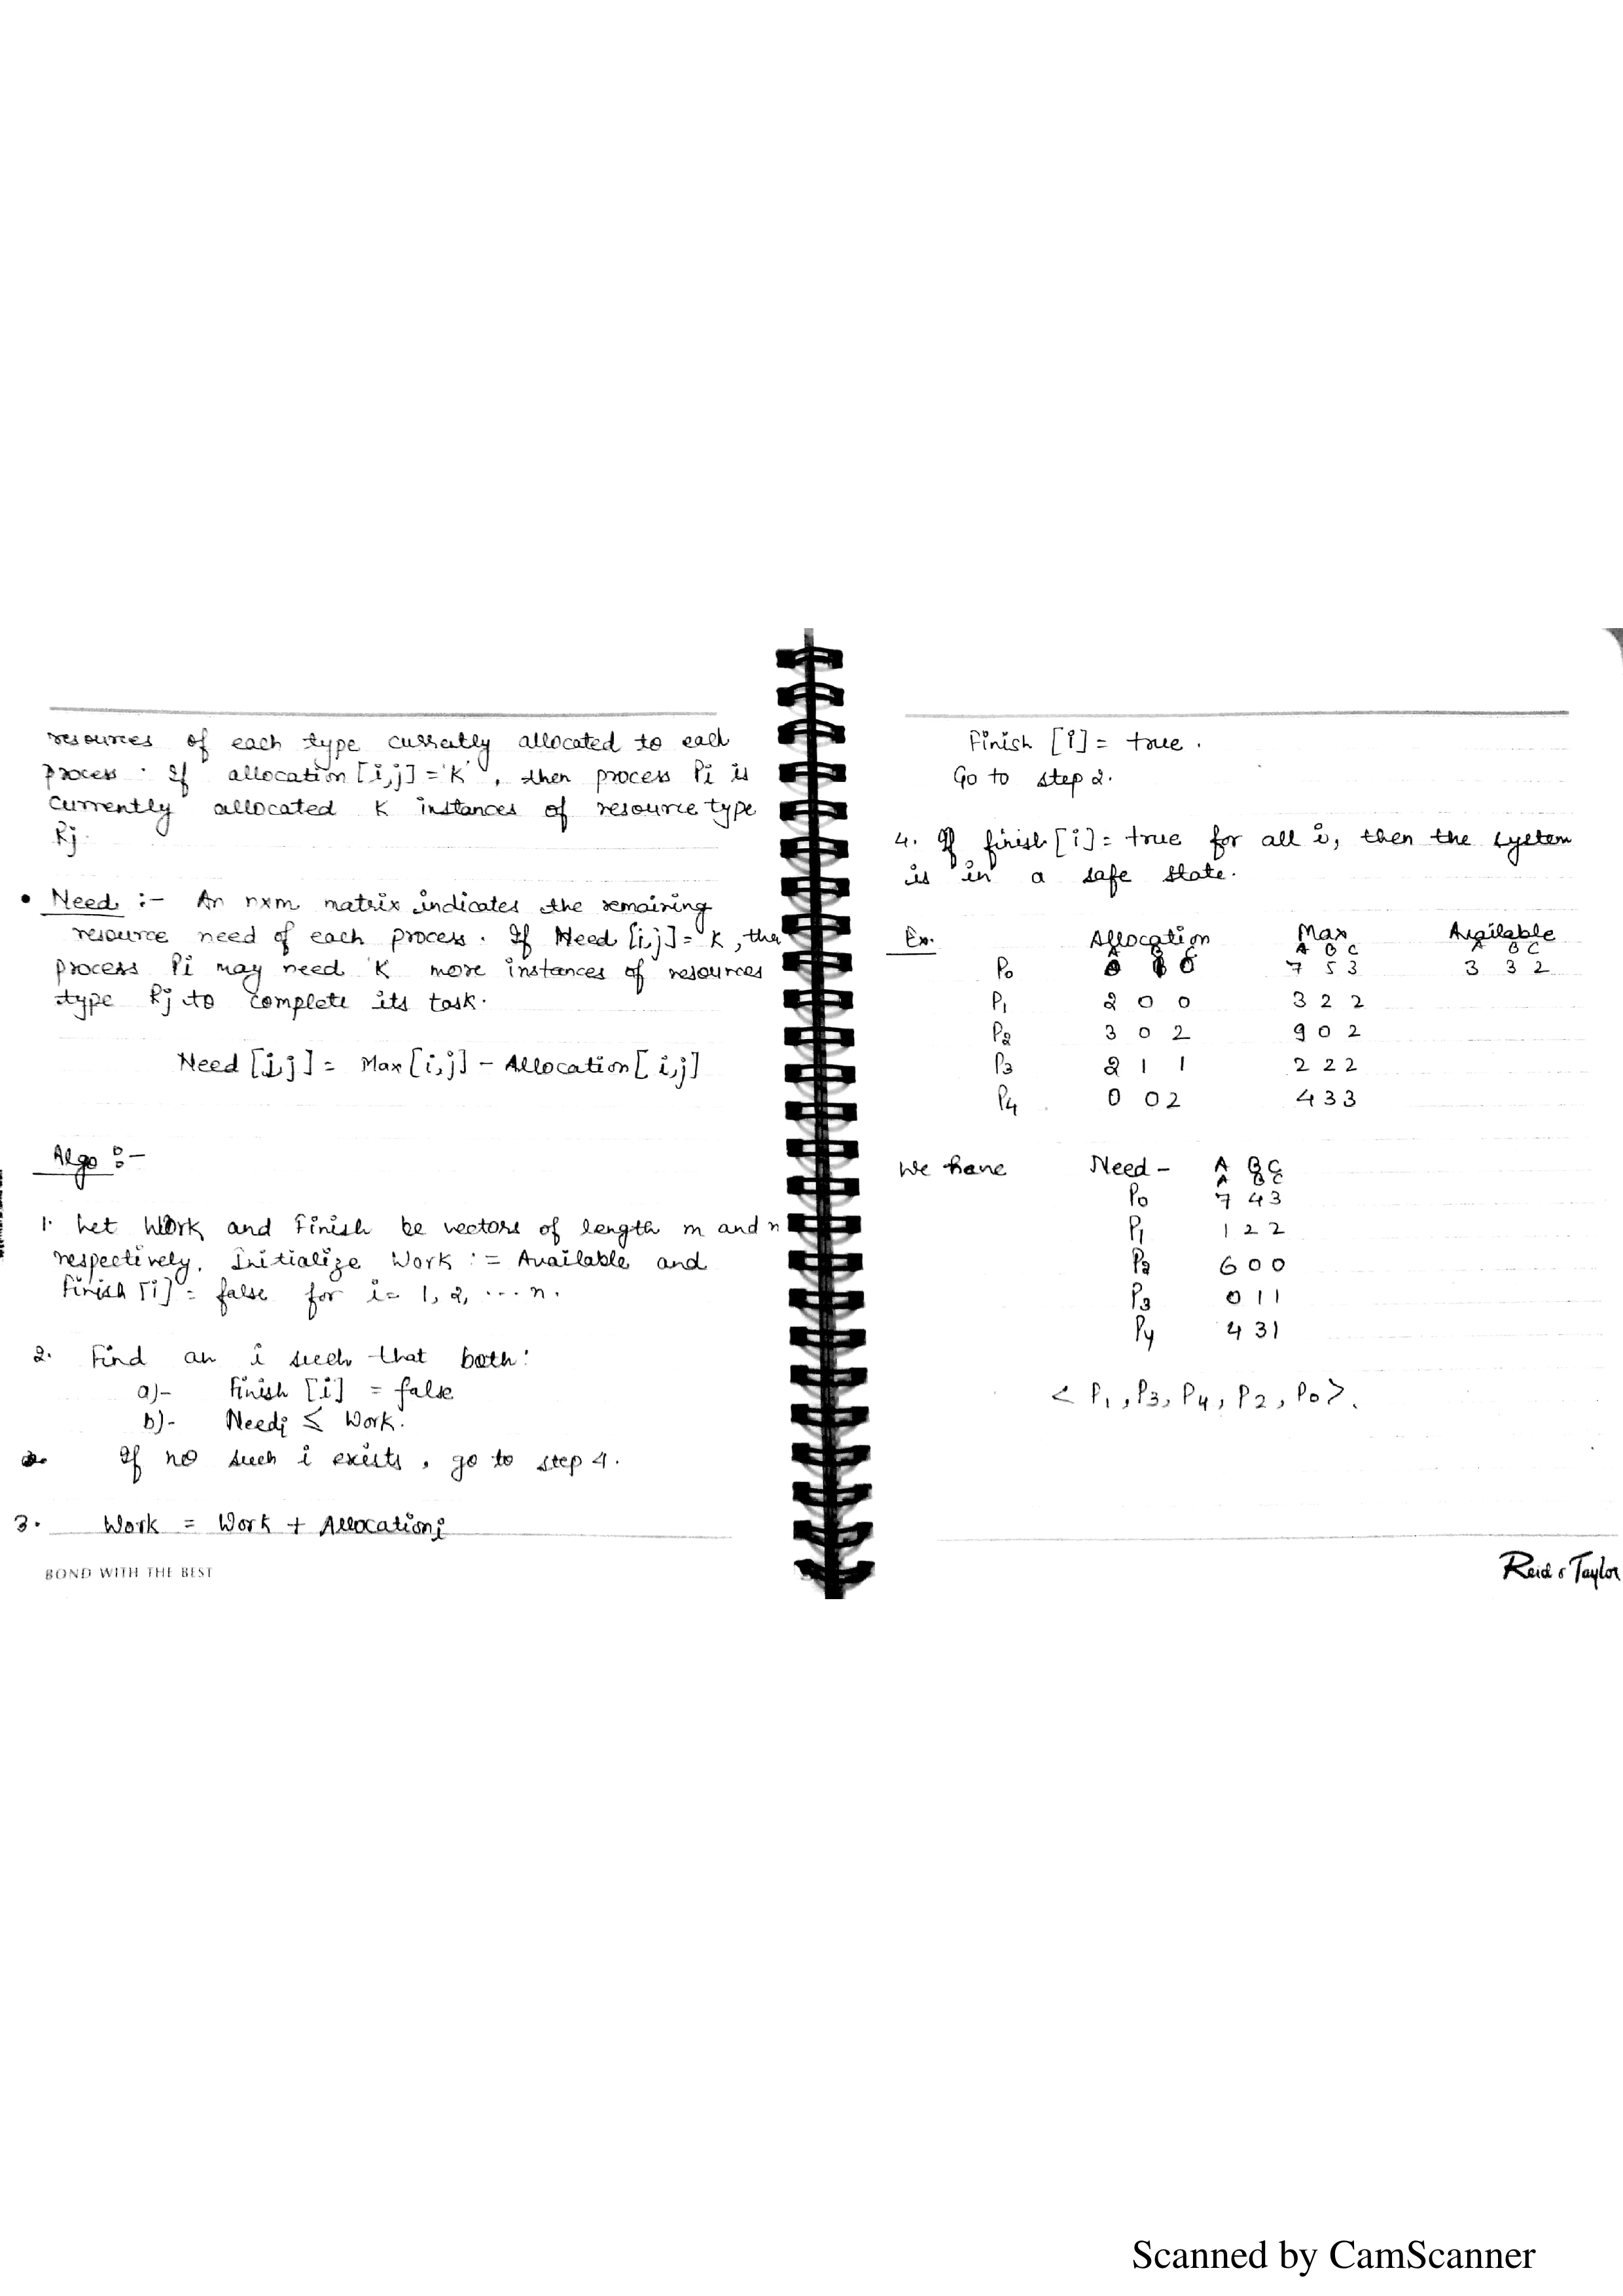 resources of each type currently allocated to each
process. If allocation [i,j] = K, then process Pi is
currently allocated K instances of resource type
Rj.
• Need :- An nxm matrix indicates the remaining
resource need of each process. If Need [i,j] = K, the
process Pi may need K more instances of resources
type Rj to complete its task.
Need [i,j] = Max [i,j] - Allocation [i,j]
Algo :-
1. Let Work and Finish be vectors of length m and n
respectively. Initialize Work := Available and
Finish [i] = false for i = 1, 2, ... n.
2. Find an i such that both:
a)- Finish [i] = false
b)- Needi ≤ Work.
If no such i exists, go to step 4.
3. Work = Work + Allocationi
BOND WITH THE BEST
Finish [i] = true.
Go to step 2.
4. If finish [i] = true for all i, then the system
is in a safe state.
Ex. Allocation Max Available
A B C B C
P0 7 5 3 3 3 2
P1 2 0 0 3 2 2
P2 3 0 2 9 0 2
P3 2 1 1 2 2 2
P4 0 0 2 4 3 3
We have Need - A B C
A B C
P0 7 4 3
P1 1 2 2
P2 6 0 0
P3 0 1 1
P4 4 3 1
< P1, P3, P4, P2, P0 >.
Reid & Taylor
Scanned by CamScanner